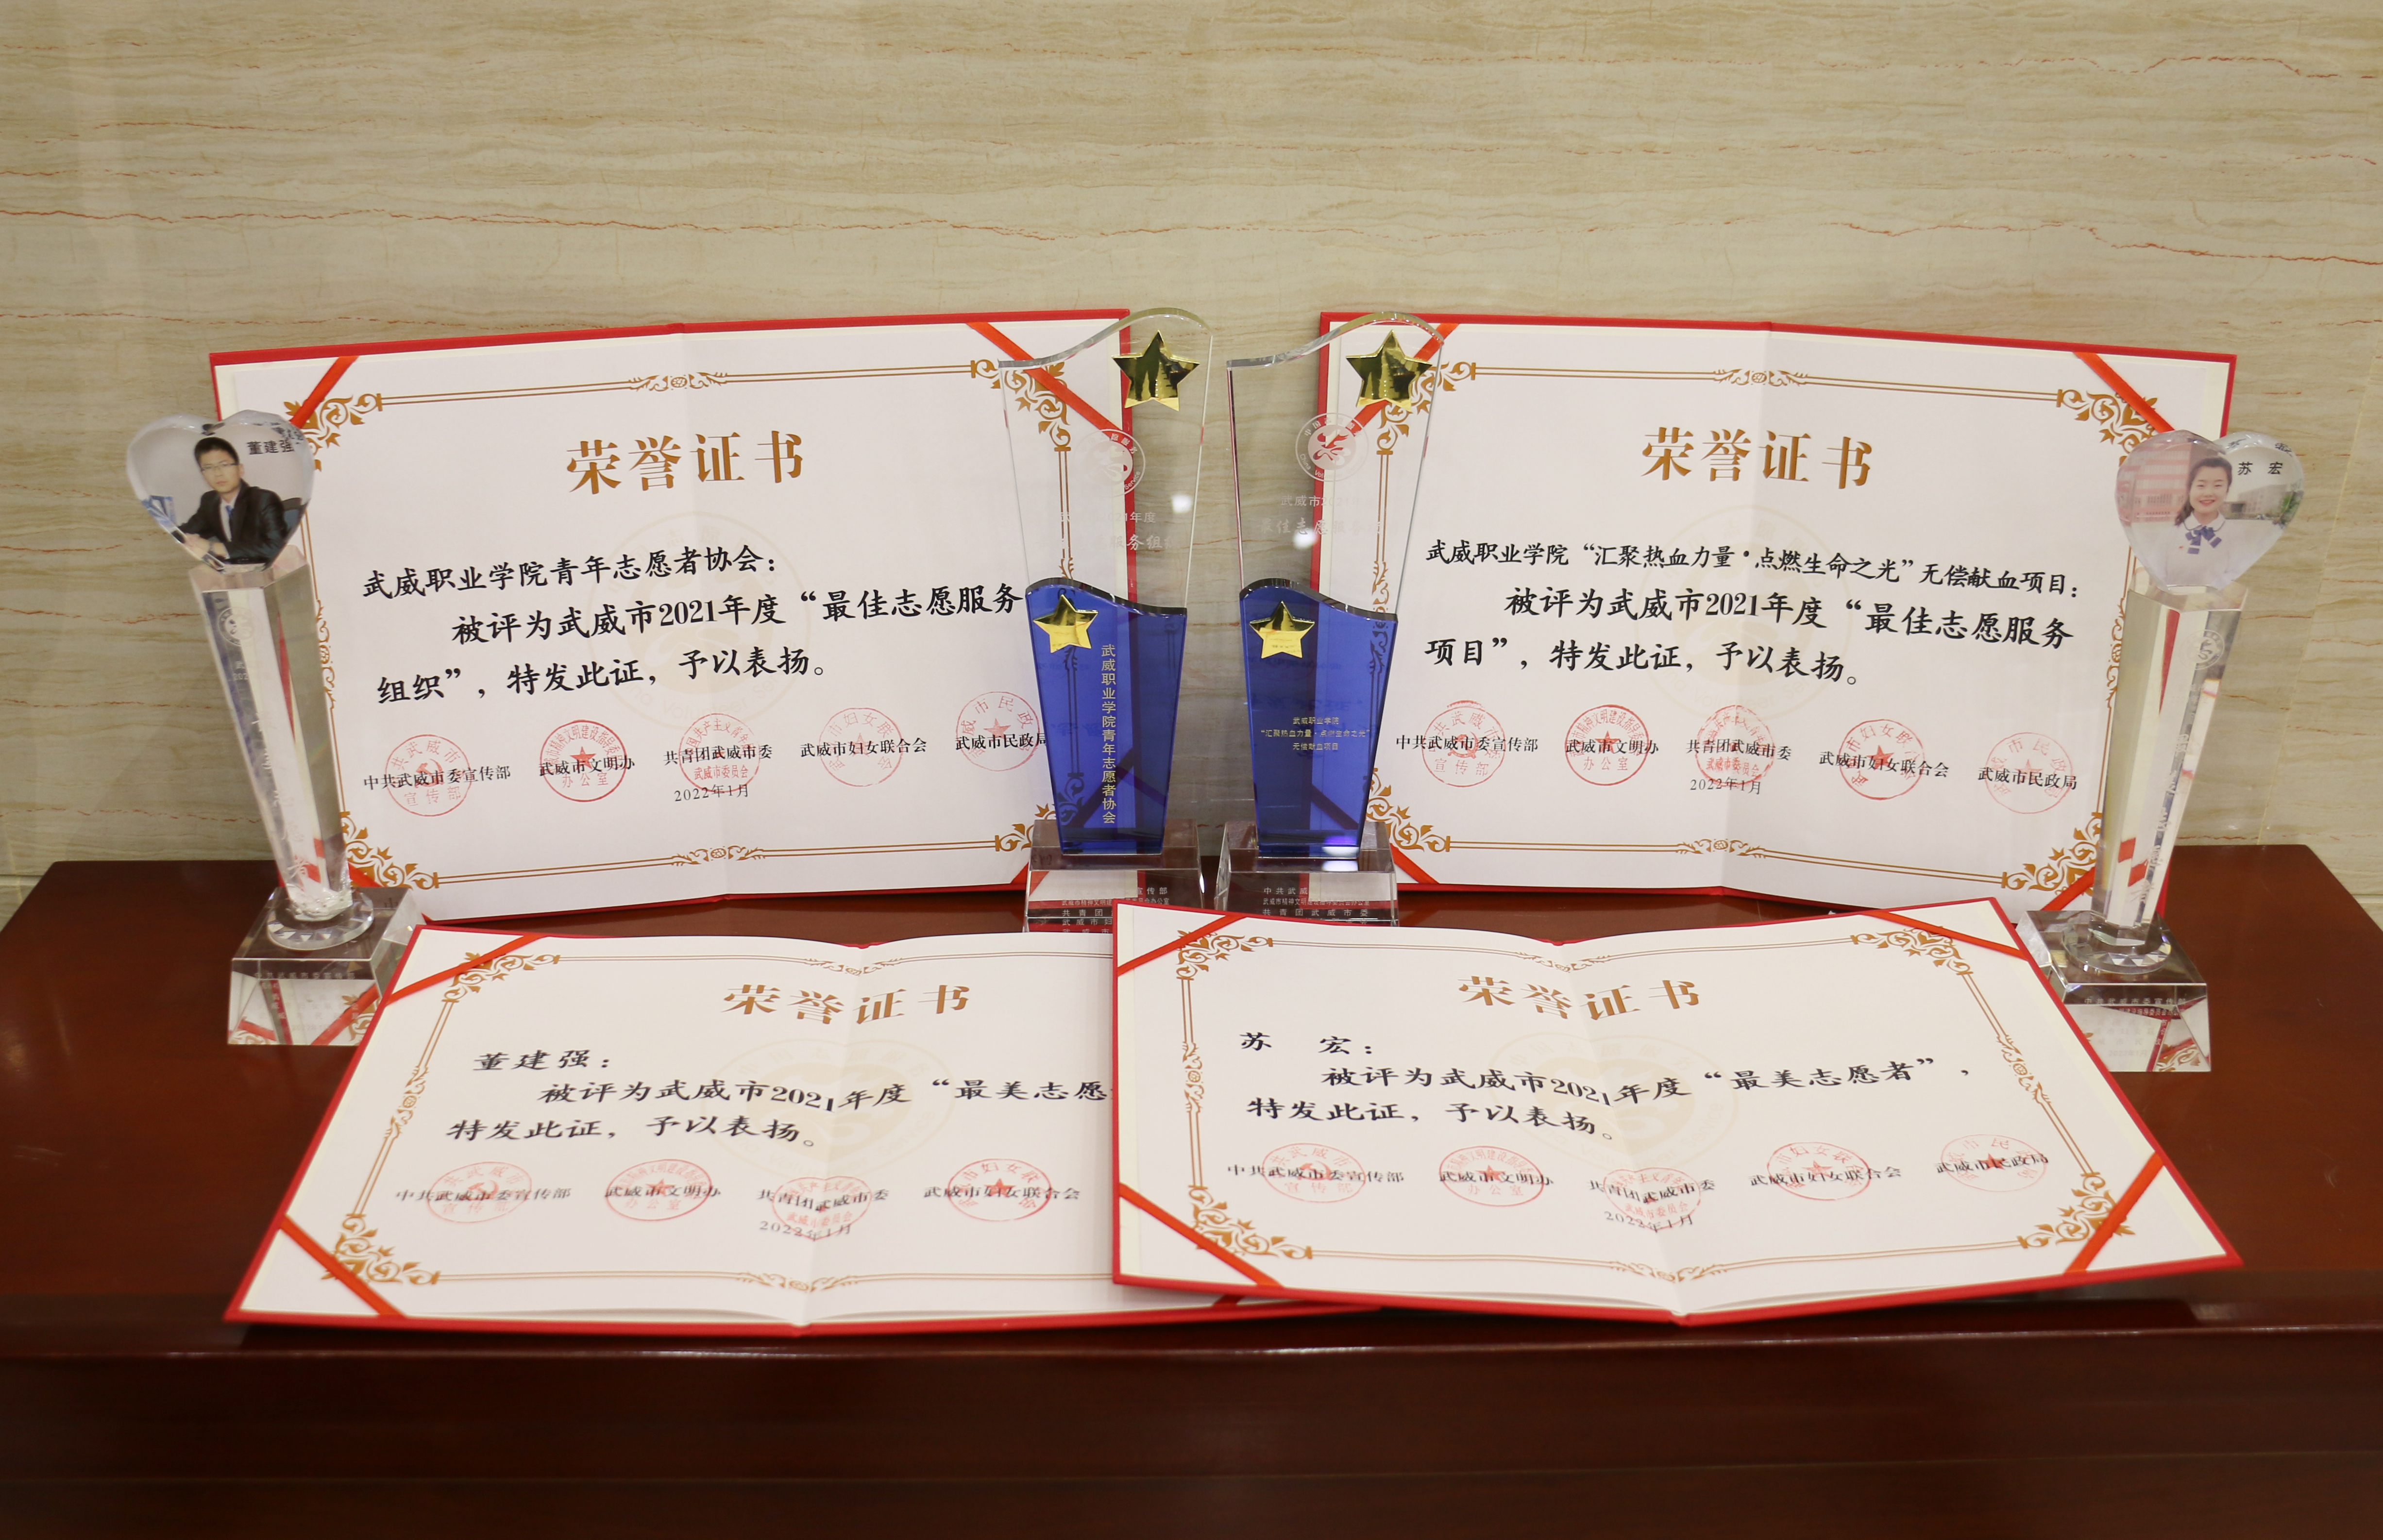 荣誉证书
武威职业学院青年志愿者协会：
被评为武威市2021年度“最佳志愿服务
组织”，特发此证，予以表扬。
中共武威市委宣传部 武威市文明办 共青团武威市委 武威市妇女联合会 武威市民政局
2022年1月
荣誉证书
武威职业学院“汇聚热血力量·点燃生命之光”无偿献血项目：
被评为武威市2021年度“最佳志愿服务
项目”，特发此证，予以表扬。
中共武威市委宣传部 武威市文明办 共青团武威市委 武威市妇女联合会 武威市民政局
2022年1月
董建强
苏 宏
武威职业学院青年志愿者协会
武威职业学院
“汇聚热血力量·点燃生命之光”
无偿献血项目
共青团武威市委
中共武威市委宣传部
荣誉证书
董建强：
被评为武威市2021年度“最美志愿
特发此证，予以表扬。
中共武威市委宣传部 武威市文明办 共青团武威市委 武威市妇女联合会
2022年1月
荣誉证书
苏 宏：
被评为武威市2021年度“最美志愿者”，
特发此证，予以表扬。
中共武威市委宣传部 武威市文明办 共青团武威市委 武威市妇女联合会 武威市民政局
2022年1月